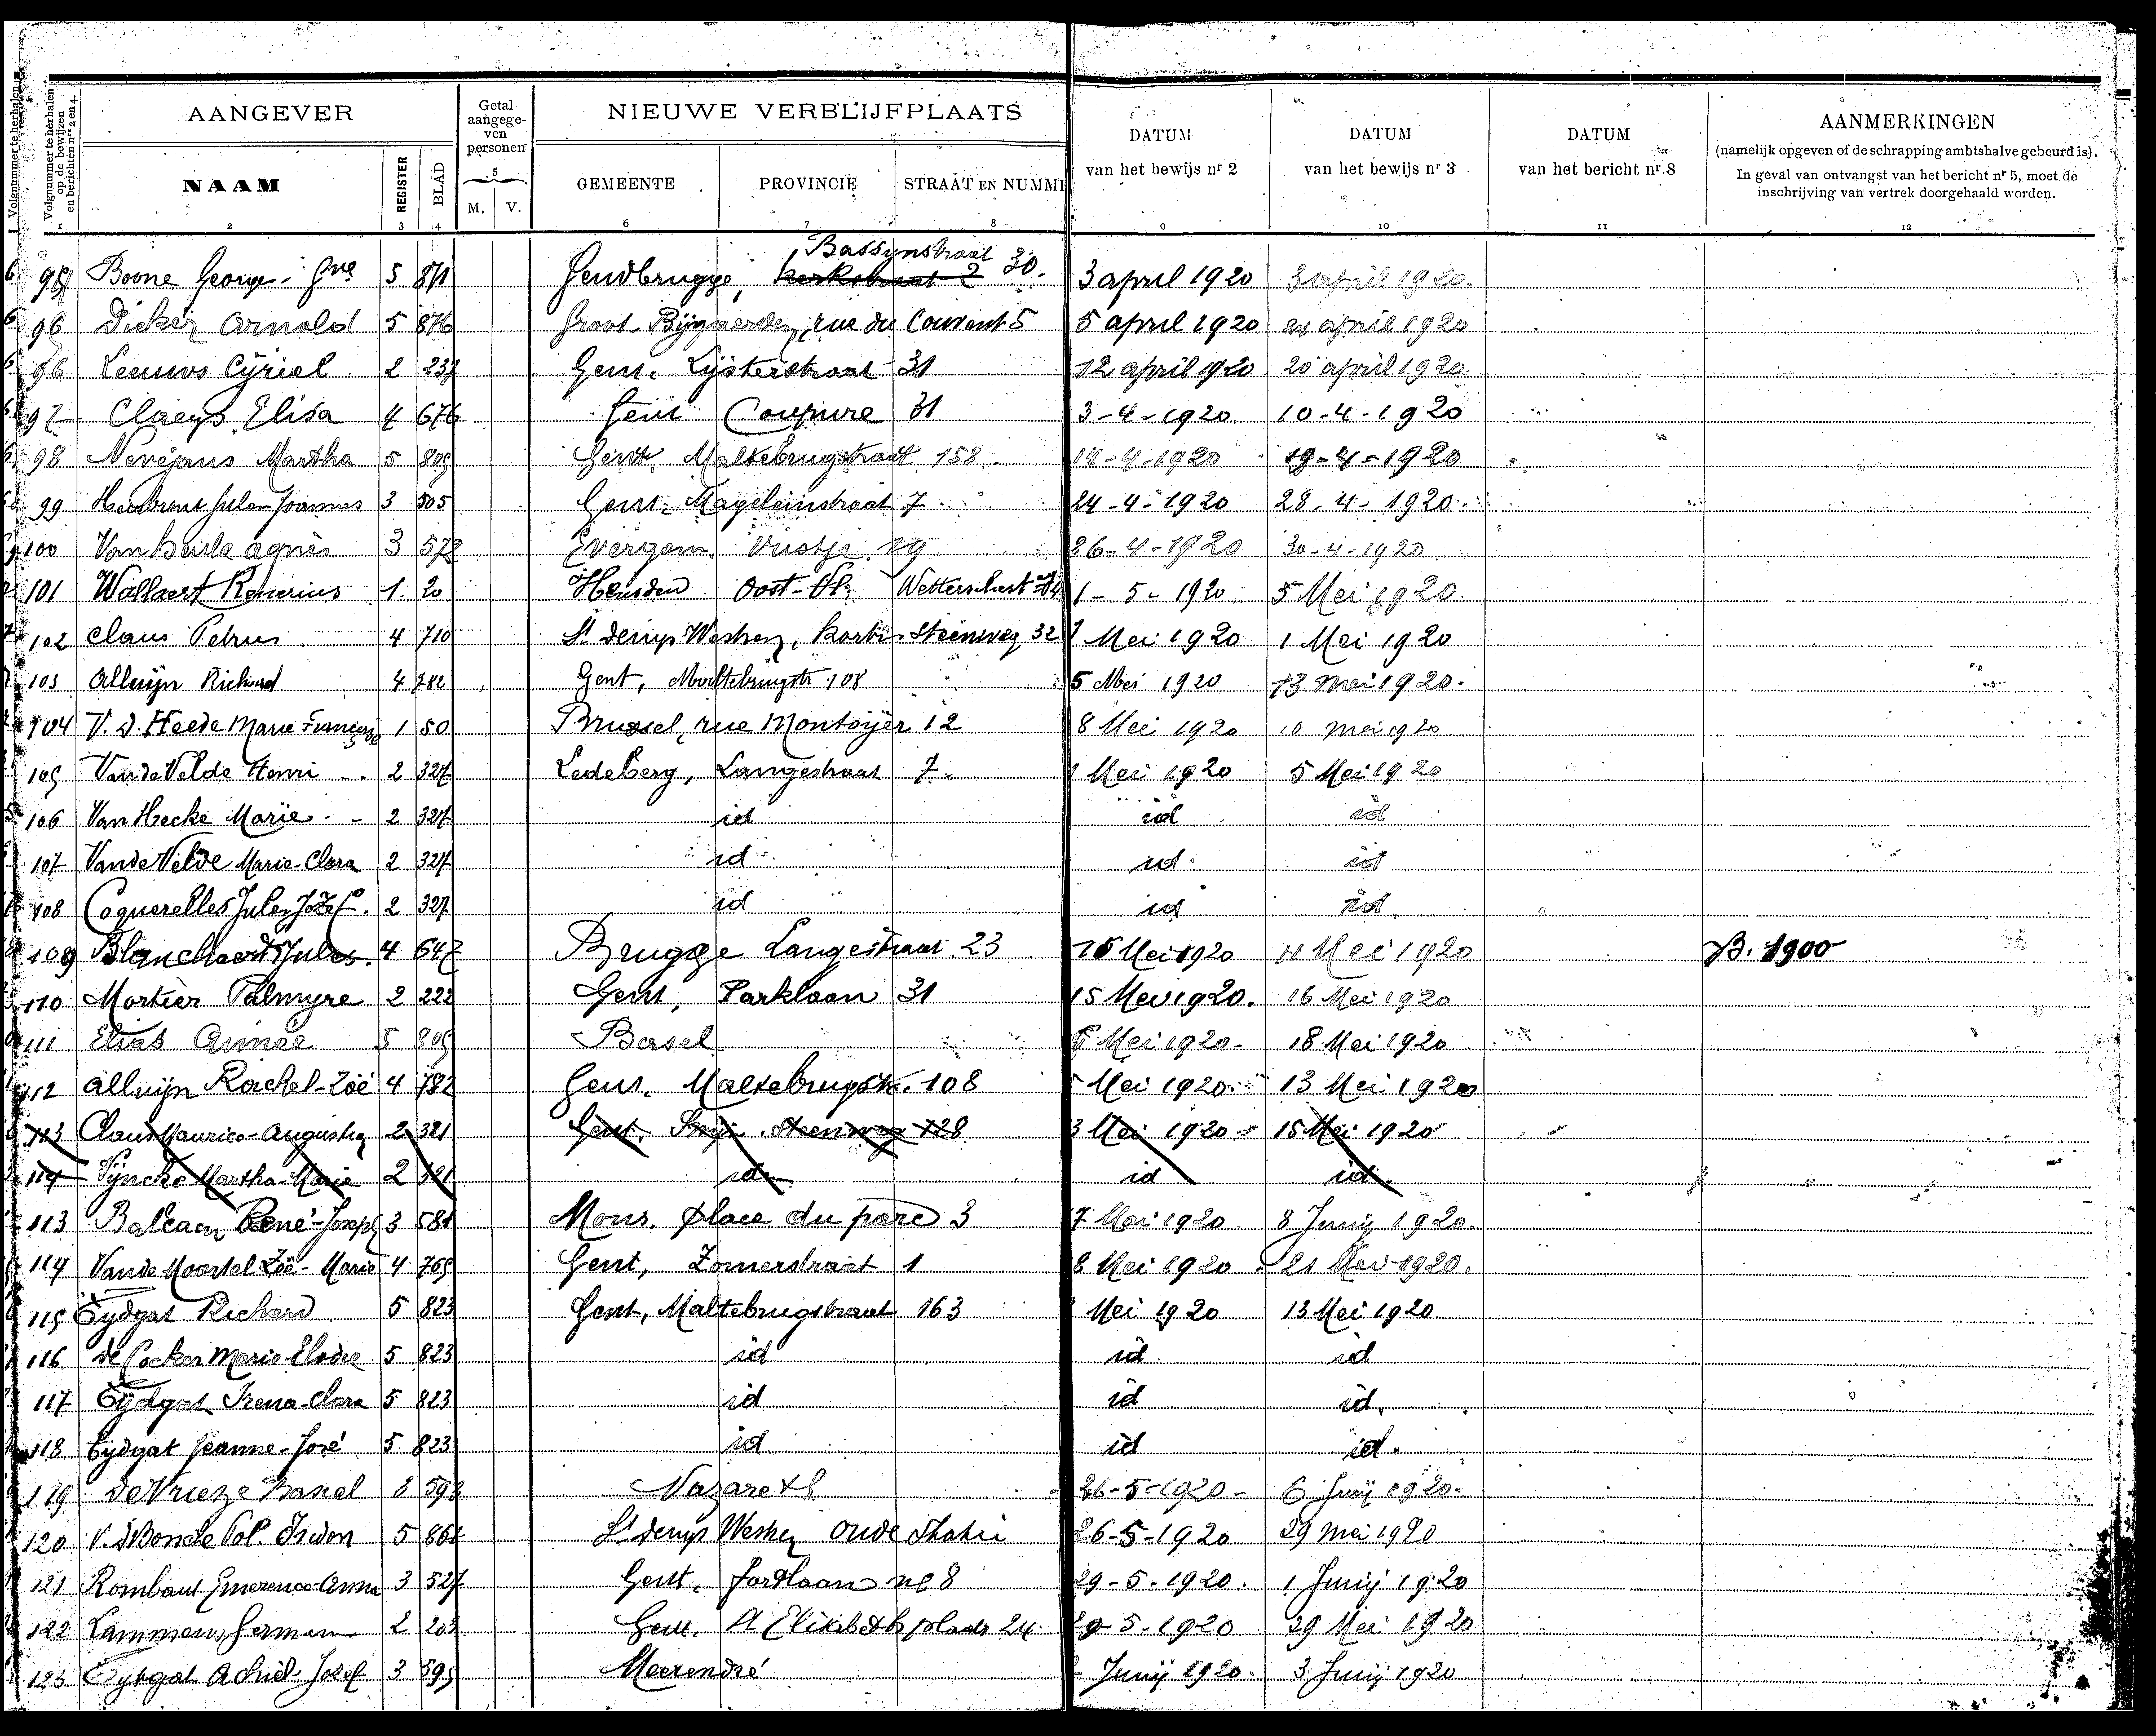 Volgnummer te herhalen op de bewijzen en berichten nrs 2 en 4.
AANGEVER
Getal aangegeven personen
NIEUWE VERBLIJFPLAATS
DATUM van het bewijs nr 2
DATUM van het bewijs nr 3
DATUM van het bericht nr 8
AANMERKINGEN
(namelijk opgeven of de schrapping ambtshalve gebeurd is).
In geval van ontvangst van het bericht nr 5, moet de
inschrijving van vertrek doorgehaald worden.
NAAM REGISTER BLAD 5 M. V. GEMEENTE PROVINCIE STRAAT EN NUMME
1 2 3 4 6 7 8 9 10 11 12
Bassijnstraat 30.
Boone George 5 871 Gendbrugge, kerkstraat 2 3 april 1920 3 april 1920.
96 Dicker Arnold 5 876 Groot-Bijgaerden, rue du Couvent 5 5 april 1920 april 1920
96 Leeuws Cyriel 2 237 Gent. Lijsterstraat 31 12 april 1920 20 april 1920.
97 Claeys Elisa 4 676 Gent Coupure 31 3-4-1920 10-4-1920
98 Nevejans Martha 5 809 Gent. Maltebrugstraat 158. -4-1920 19-4-1920
99 Joannes 3 505 Gent. Mageleinstraat 7 24-4-1920 28-4-1920.
100 Van Heule Agnès 3 572 Evergem 29 26-4-1920 30-4-1920
101 Wallaert Renerius 1. 20 Heusden Oost-Vl. 1-5-1920 5 Mei 1920.
102 Claus Petrus 4 710 St Denys Westrem, Kortr. Steenweg 32 1 Mei 1920 1 Mei 1920
103 Alluijn Richard 4 782 Gent, Maltebrugstr. 108 5 Mei 1920 13 Mei 1920.
104 V. d. Heede Marie 1 50 Brussel, rue Montoyer 12 8 Mei 1920 10 Mei 1920
105 Van de Velde Henri 2 327 Ledeberg, Langestraat 7 Mei 1920 5 Mei 1920
106 Van Hecke Marie 2 327 id id id
107 Van de Velde Marie-Clara 2 327 id id id
108 Coquerelles Jules Jozef. 2 327 id id id
109 Blanchaert Jules. 4 647 Brugge Langestraat 23 15 Mei 1920 Mei 1920 B. 1900
110 Mortier Palmyre 2 222 Gent, Parklaan 31 15 Mei 1920. 16 Mei 1920
111 Elias Aimée 5 809 Mei 1920- 18 Mei 1920
112 Alluijn Rachel-Zoé 4 782 Gent. Maltebrugstr. 108 Mei 1920 13 Mei 1920
113 Claus Maurice-Augustin 2 321 Gent. Steenweg 128 3 Mei 1920 15 Mei 1920
114 Vijncke Martha-Marie 2 321 id id id
113 Balcaen René-Joseph 3 581 Mons. place du parc 3 7 Mei 1920. 8 Junij 1920.
114 Van de Moortel Zoë-Marie 4 769 Gent, Zomerstraat 1 8 Mei 1920 21 Mei 1920.
115 Tydgat Richard 5 823 Gent, Maltebrugstraat 163 Mei 1920 13 Mei 1920
116 de Cocker Marie-Elodie 5 823 id id. id
117 Tijdgat Irena-Clara 5 823 id id id.
118 Tydgat Jeanne-José 5 823 id id id.
119 De Vrieze Basiel 3 593 Nazareth 26-5-1920- 6 Junij 1920.
120 V. d Boncle Pol. 5 St Denys Westrem Oude Statie 26-5-1920 29 Mei 1920
121 Rombaut Emerence-Anna 3 527 Gent. Fortlaan no 8 29-5-1920. 1 Junij 1920
122 Lammens German 2 203 Gent. St Elisabeth plaats 24 29-5-1920 29 Mei 1920
123 Tydgat Achiel-Jozef 3 595 Meerendré Junij 1920. 3 Junij 1920